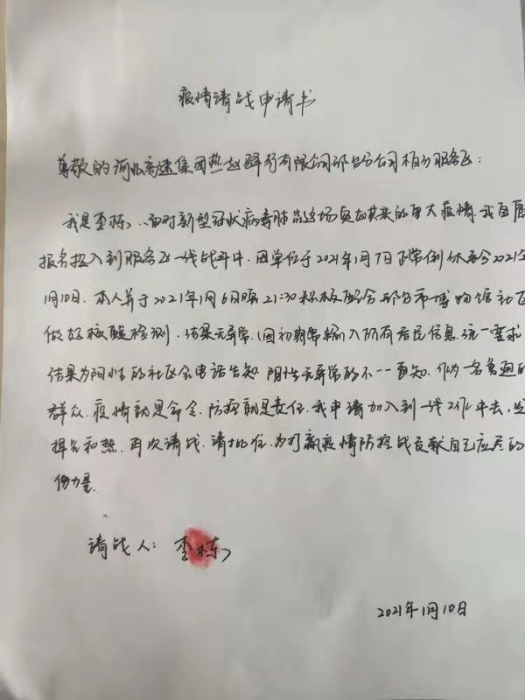 疫情请战申请书
尊敬的河北高速集团燕赵驿行有限公司邢台分公司柏乡服务区:
我是李栋,面对新型冠状病毒肺炎这场突如其来的重大疫情,我自愿
报名投入到服务区一线战斗中,因单位于2021年1月7日正常倒休至今2021年
1月10日,本人并于2021年1月6日晚21:30积极配合邢台市博物馆社区
做好核酸检测,结果无异常,(因初期需输入所有居民信息,统一要求
结果为阳性的社区会电话告知,阴性无异常的不一一自知,作为一名普通的
群众,疫情就是命令,防控就是责任,我申请加入到一线工作中去,
再次请战,请批准,为打赢疫情防控战贡献自己应尽的
份力量.
请战人:李栋
2021年1月10日